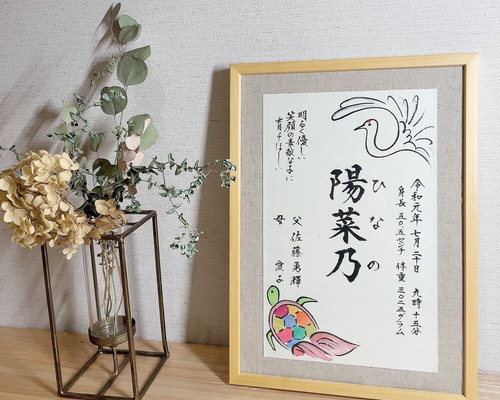 令和元年 七月二十日 九時十五分
身長 五〇.五センチ 体重 三〇二五グラム
ひなの
陽菜乃
父 佐藤勇輝
母 愛子
明るく優しい
笑顔の素敵な子に
育ってほしい